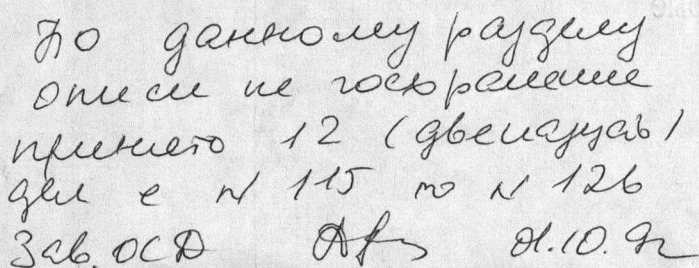 По данному разделу
описи на госхранение
принято 12 (двенадцать)
дел с N 115 по N 126
Зав. ОСД 10.92